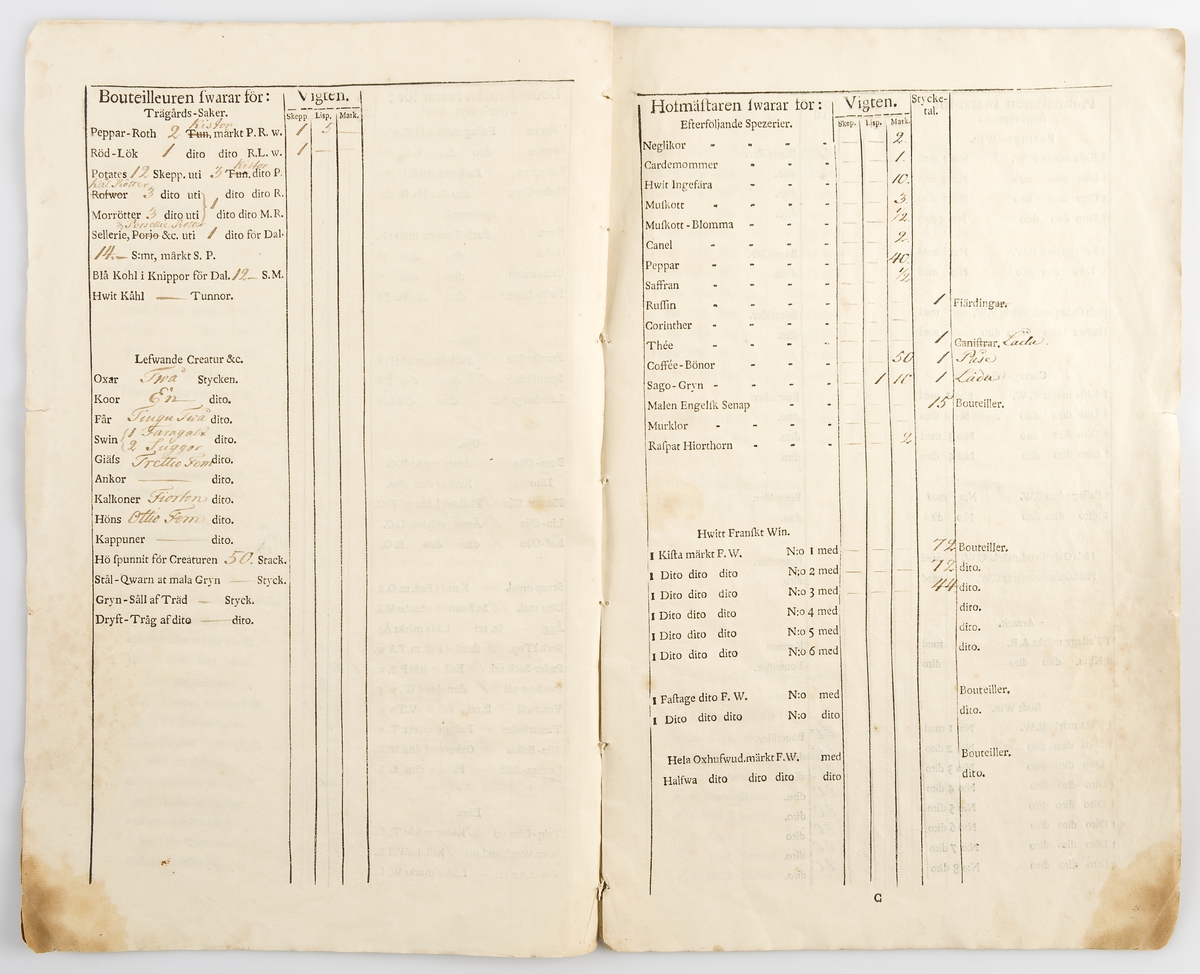 Bouteilleuren ſwarar för: Vigten.
Trägårds-Saker. Skepp Lisp. Mark.
Kistor
Peppar-Roth 2 Tun, märkt P.R. w. 1 5 —
Röd-Lök 1 dito dito R.L. w. 1 — —
Kistor
Potates 12 Skepp. uti 3 Tun. dito P.
Kål Rötter
Rofwor 3 dito uti dito dito R.
Morrötter 3 dito uti } 1 dito dito M.R.
Sellerie, Porjo &c. uti 1 dito för Dal.
14.— S:mt, märkt S. P.
Blå Kohl i Knippor för Dal. 12— S.M.
Hwit Kåhl — Tunnor.
Lefwande Creatur &c.
Oxar Twå Stycken.
Koor En dito.
Får Tiugu Twå dito.
Swin { 1 Faragalt dito.
2 Suggor
Giäſs Trettio Fem dito.
Ankor — dito.
Kalkoner Fiorton dito.
Höns Ottio Fem dito.
Kappuner — dito.
Hö ſpunnit för Creaturen 50. Stack.
Stål-Qwarn at mala Gryn — Styck.
Gryn-Såll af Träd — Styck.
Dryft-Tråg af dito — dito.
Hofmäſtaren ſwarar för: Vigten. Stycke-
tal.
Efterföljande Spezerier. Skep. Lisp. Mark.
Neglikor - - - — — 2.
Cardemommer - - — — 1.
Hwit Ingefära - - — — 10.
Muſkott - - - — — 3.
Muſkott-Blomma - - — — 1/2.
Canel - - - — — 2.
Peppar - - - — — 40.
Saffran - - - — — 1/2
Ruſſin - - - — — — 1 Fiärdingar.
Corinther - - - — — —
Thée - - - — — — 1 Caniſtrar. Låda.
Coffée-Bönor - - — — 50 1 Påse
Sago-Gryn - - - — 1 10 1 Låda
Malen Engelſk Senap - - — — — 15 Bouteiller.
Murklor - - - — — —
Raſpat Hiorthorn - - — — 2
Hwitt Franſkt Win.
1 Kiſta märkt F. W. N:o 1 med — — — 72 Bouteiller.
1 Dito dito dito N:o 2 med — — — 72 dito.
1 Dito dito dito N:o 3 med 44 dito.
1 Dito dito dito N:o 4 med dito.
1 Dito dito dito N:o 5 med dito.
1 Dito dito dito N:o 6 med dito.
1 Faſtage dito F. W. N:o med Bouteiller.
1 Dito dito dito N:o dito dito.
Hela Oxhufwud. märkt F.W. med Bouteiller.
Halfwa dito dito dito dito dito.
C